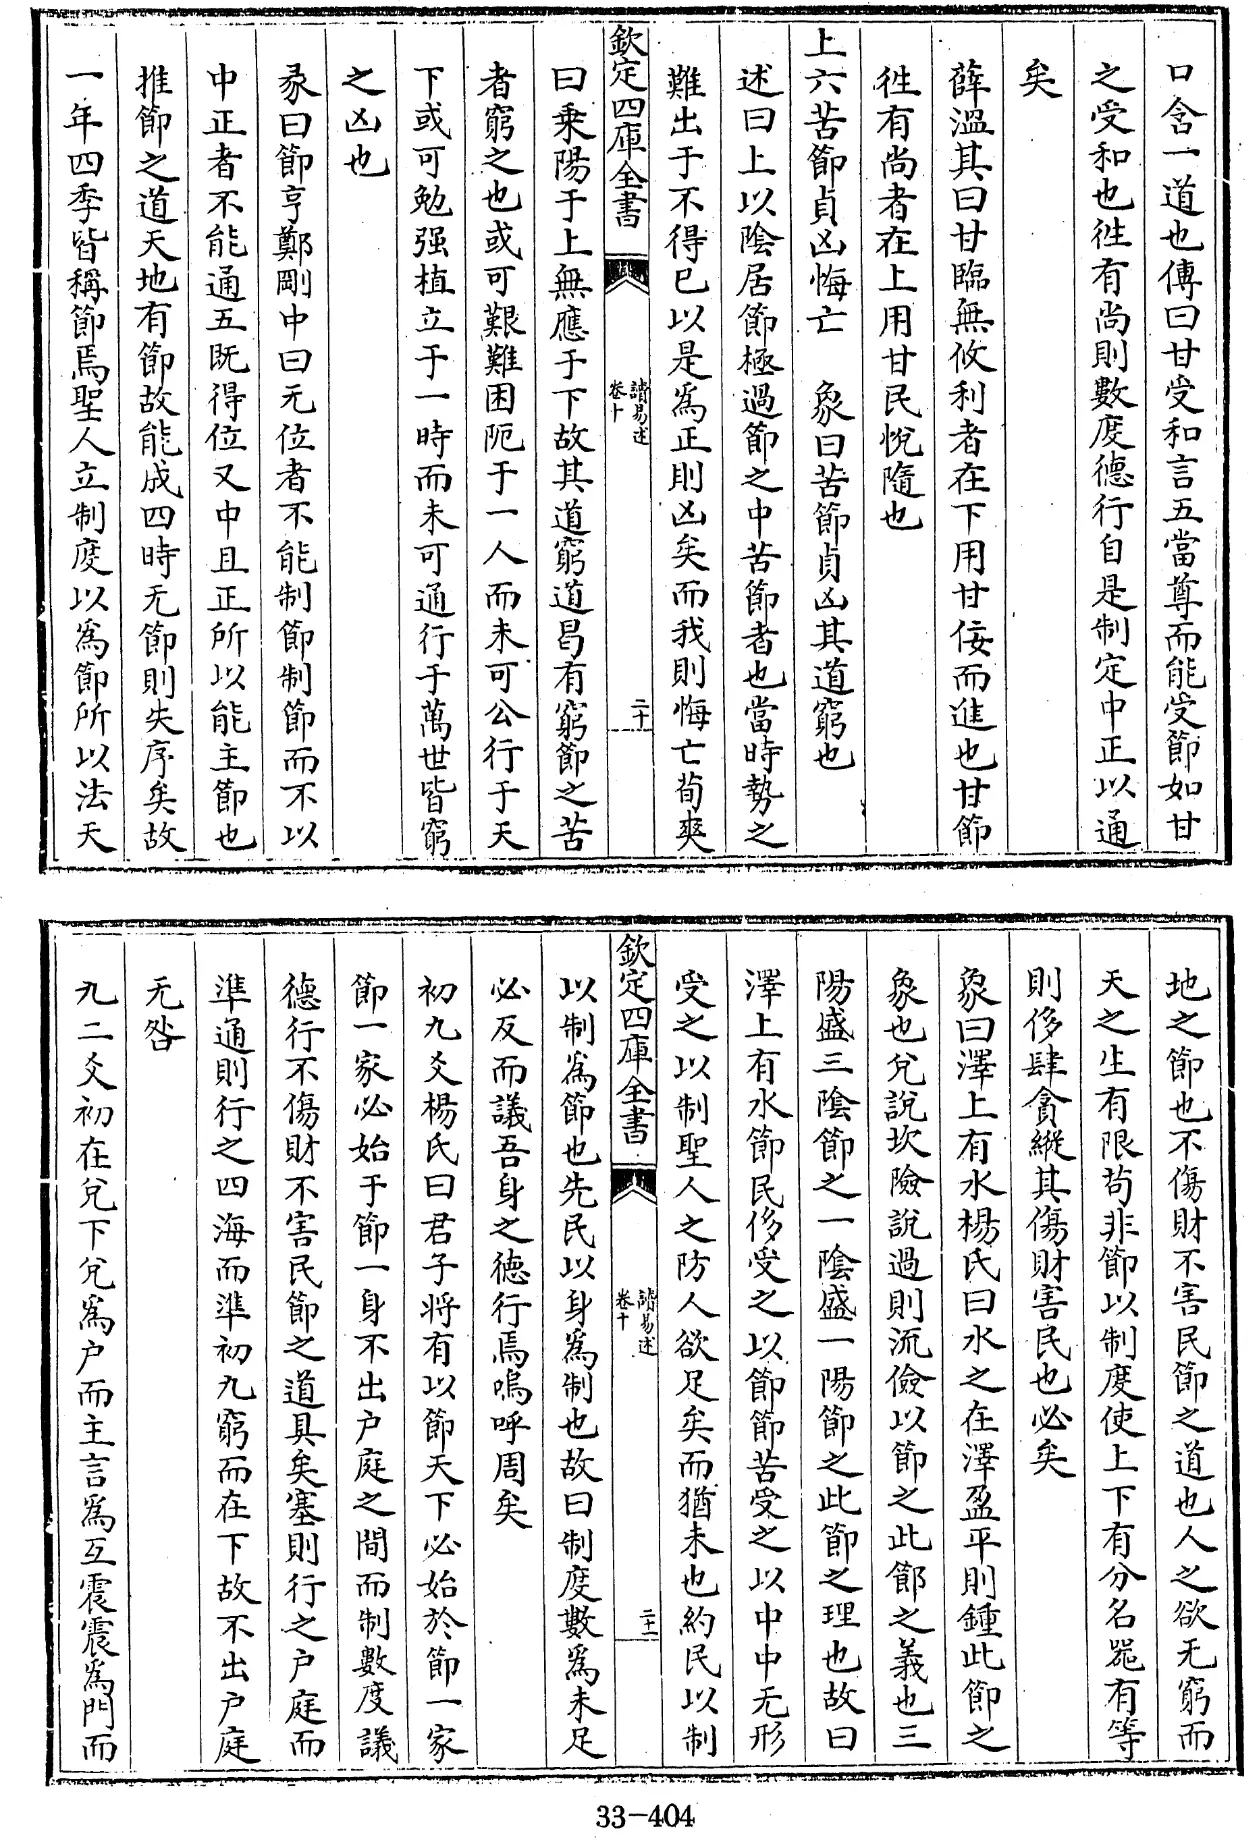 口含一道也傳曰甘受和言五當尊而能受節如甘
之受和也徃有尚則數度德行自是制定中正以通
矣
薛溫其曰甘臨無攸利者在下用甘佞而進也甘節
徃有尚者在上用甘民悅隨也
上六苦節貞凶悔亡　象曰苦節貞凶其道窮也
述曰上以陰居節極過節之中苦節者也當時勢之
難出于不得已以是為正則凶矣而我則悔亡荀爽
欽定四庫全書
讀易述
卷十
二十
曰乗陽于上無應于下故其道窮道曷有窮節之苦
者窮之也或可艱難困阨于一人而未可公行于天
下或可勉强植立于一時而未可通行于萬世皆窮
之凶也
彖曰節亨鄭剛中曰无位者不能制節制節而不以
中正者不能通五既得位又中且正所以能主節也
推節之道天地有節故能成四時无節則失序矣故
一年四季皆稱節焉聖人立制度以為節所以法天
地之節也不傷財不害民節之道也人之欲无窮而
天之生有限苟非節以制度使上下有分名器有等
則侈肆貪縱其傷財害民也必矣
象曰澤上有水楊氏曰水之在澤盈平則鍾此節之
象也兌說坎險說過則流儉以節之此節之義也三
陽盛三陰節之一陰盛一陽節之此節之理也故曰
澤上有水節民侈受之以節節苦受之以中中无形
受之以制聖人之防人欲足矣而猶未也約民以制
欽定四庫全書
讀易述
卷十
二十一
以制為節也先民以身為制也故曰制度數為未足
必反而議吾身之德行焉嗚呼周矣
初九爻楊氏曰君子將有以節天下必始於節一家
節一家必始于節一身不出户庭之間而制數度議
德行不傷財不害民節之道具矣塞則行之户庭而
準通則行之四海而準初九窮而在下故不出户庭
无咎
九二爻初在兌下兌為户而主言為互震震為門而
33-404